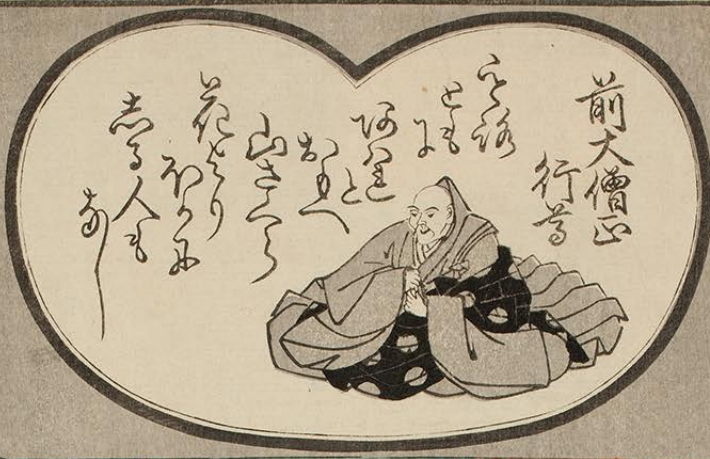 前大僧正
行尊
も路
ともに
阿はれと
おもへ
山さくら
花より
ほかに
志る人も
なし